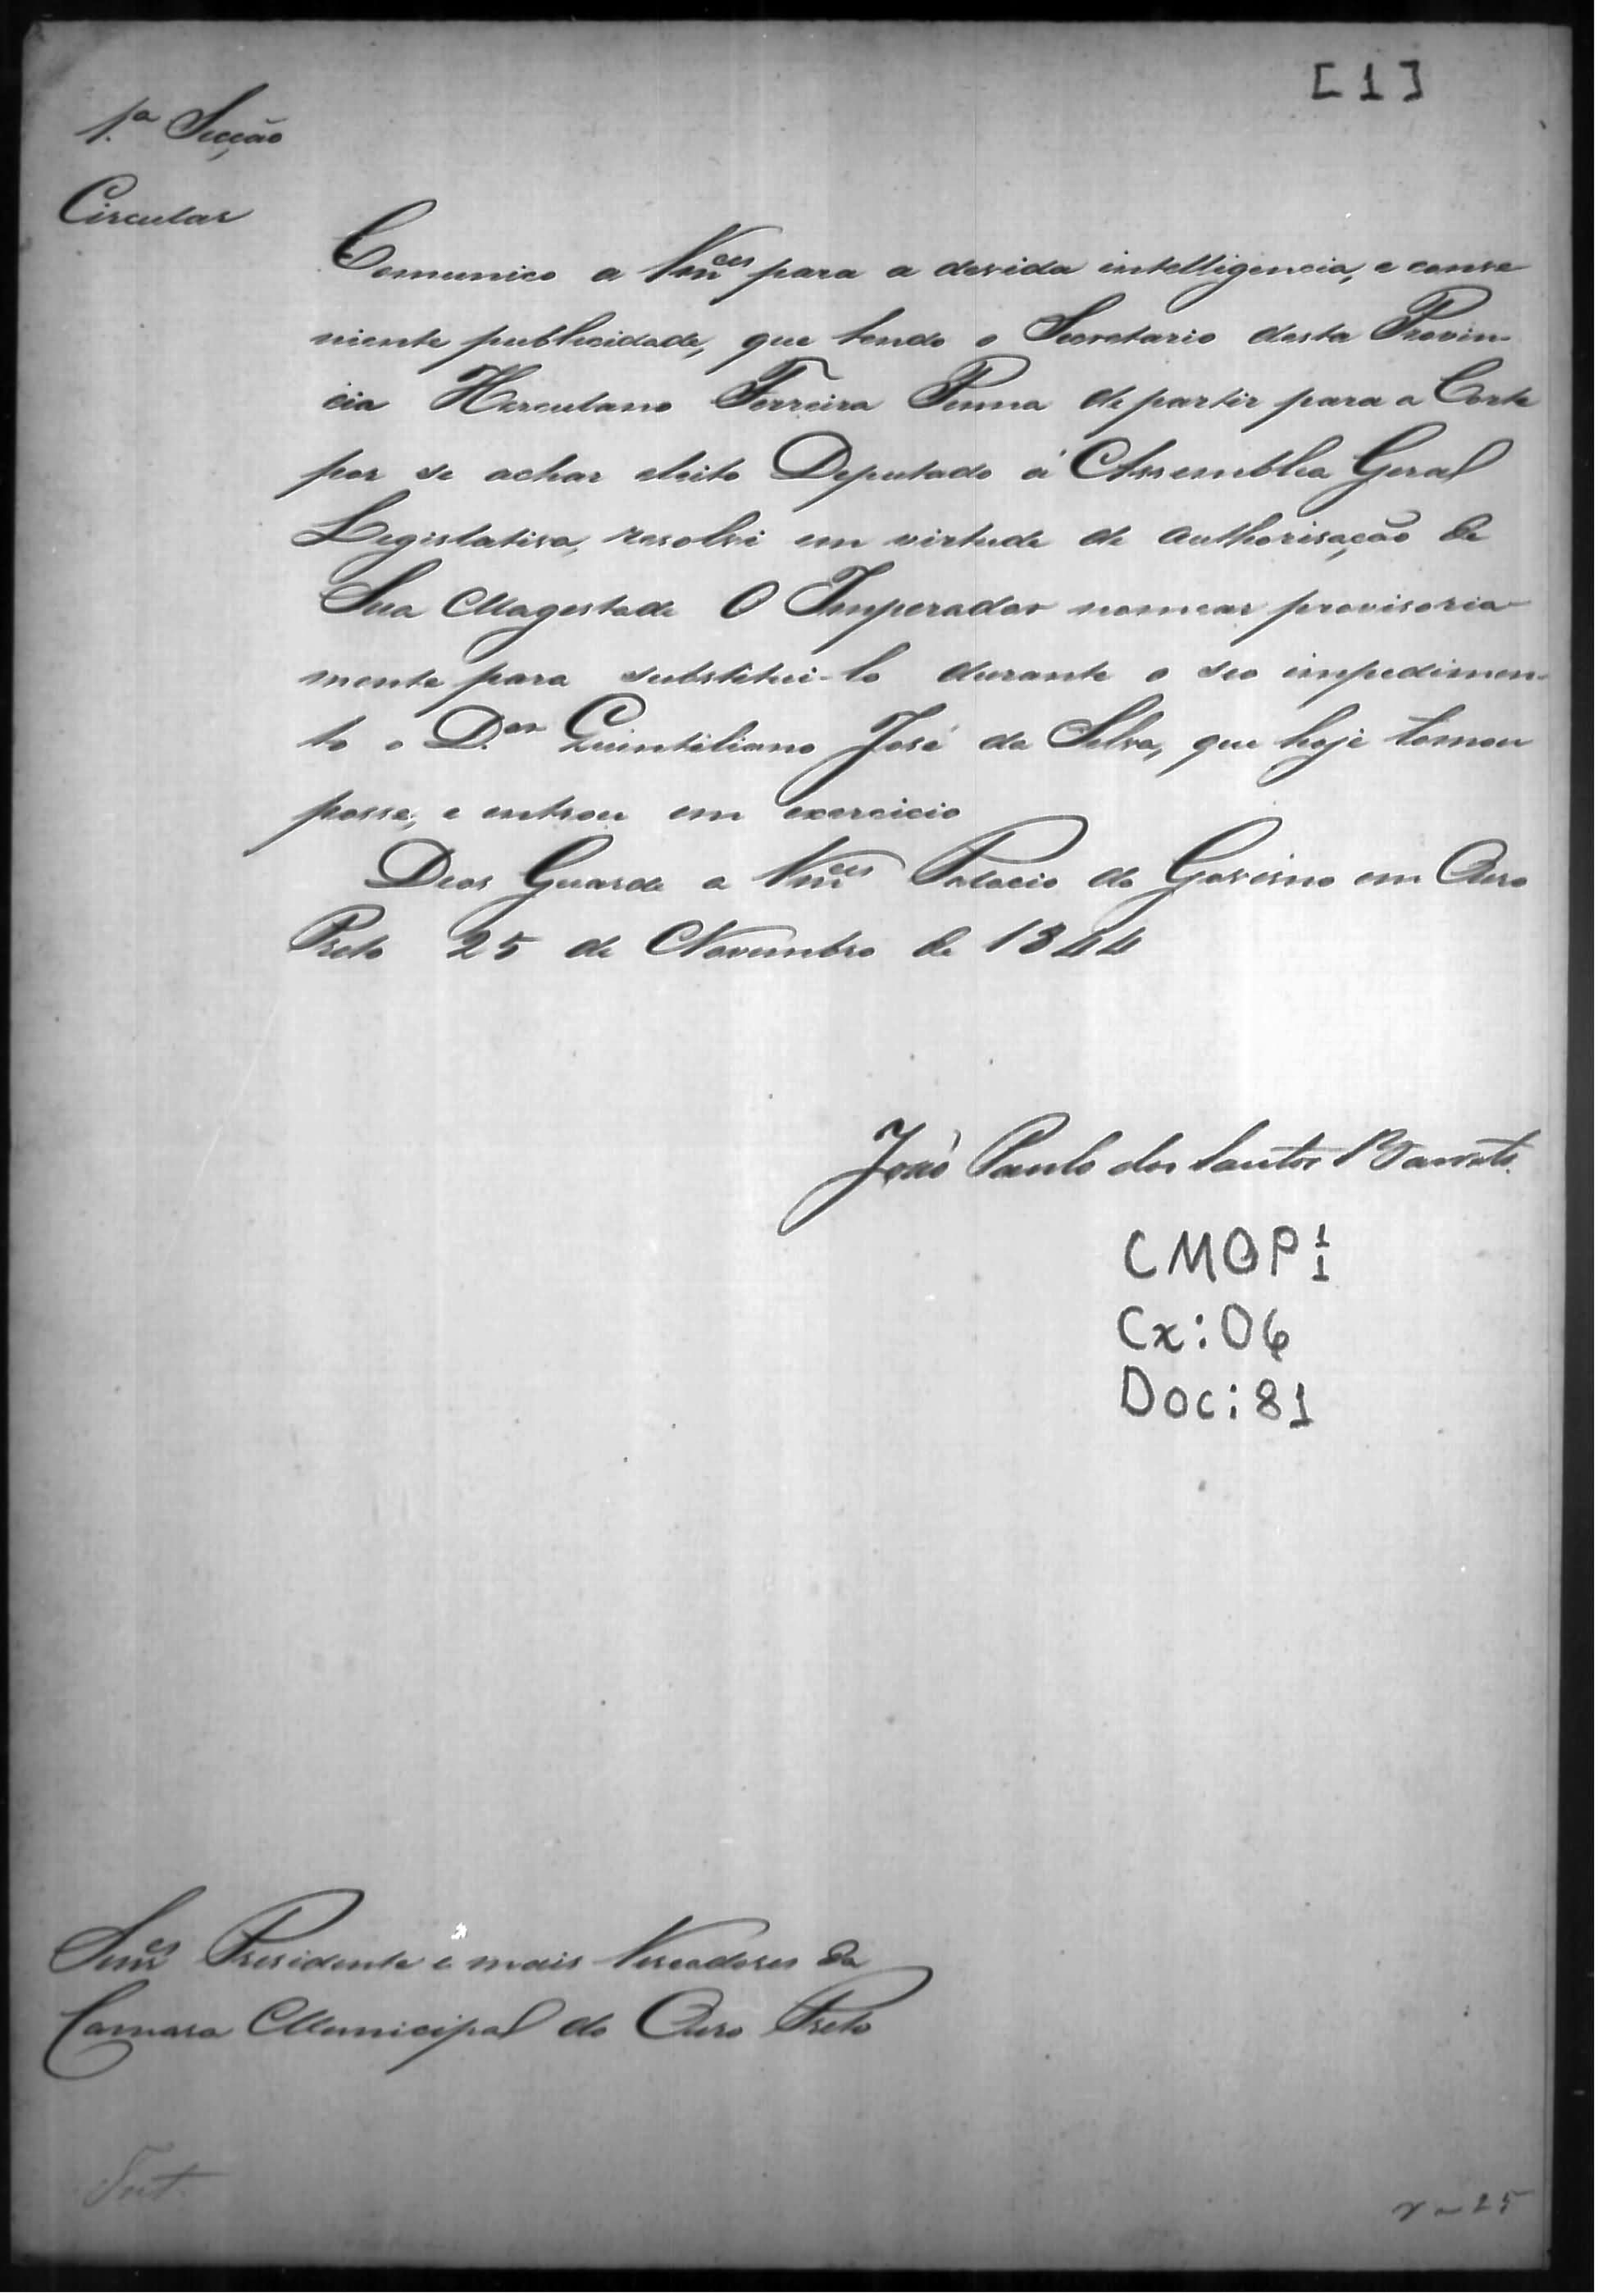 [1]
1.ª Secção
Circular
Comunico a Vmces para a devida intelligencia, e conve
niente publicidade, que tendo o Secretario desta Provin-
cia Herculano Ferreira Penna de partir para a Corte
por se achar eleito Deputado á Assemblea Geral
Legislativa, resolvi em virtude de authorisação de
Sua Magestade O Imperador nomear provisoria
mente para substitui-lo durante o seo impedimen-
to o D.or Quintiliano José da Silva, que hoje tomou
posse, e entrou em exercicio
Deos Guarde a Vmces Palacio do Governo em Ouro
Preto 25 de Novembro de 1844
João Paulo dos Santos Barreto.
CMOP 1/1
Cx: 06
Doc: 81
Snres Presidente e mais Vereadores da
Camara Municipal do Ouro Preto
25